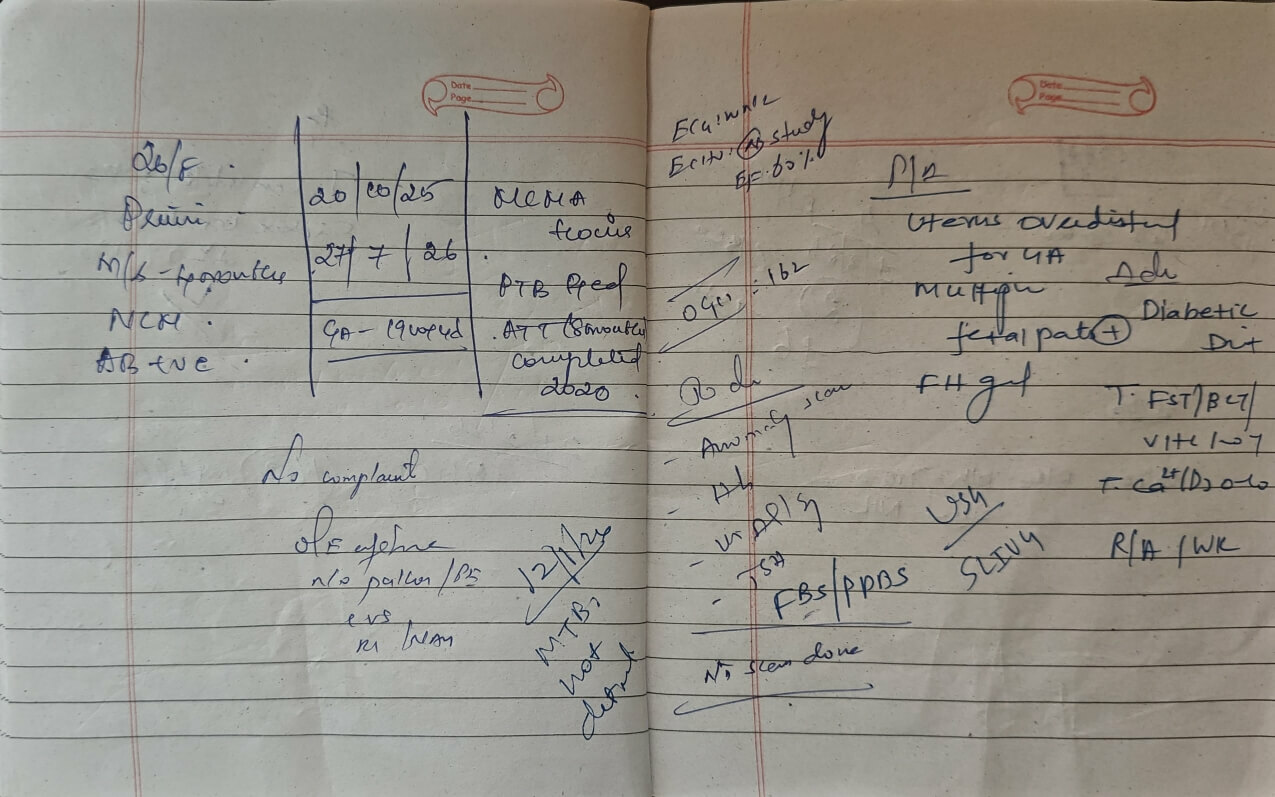 Date
Page
26/F .
Primi .
M/S - 4 months
NCM .
AB +ve .
20/10/25
27/7/26
GA - 19w
MCMA
PTB
ATT (8 months)
completed
2020 .
No complaint
O/E afebrile
n/o pallor /PE
CVS
RS /NAD
12/1/24
MTB
not
Date
Page
ECG : WNL
ECHO : (N) study
EF : 60%
OGCT : 162
- Anomaly scan
FBS/PPBS
No scan done
P/A
Uterus overdistend
for GA
Multiple
fetal parts (+)
FH
USG
SLIUG
Adv
Diabetic
Diet
T. FST/BCT/
Vit C 1-0-1
T. Ca2+/D3 0-1-0
R/A 1 WK